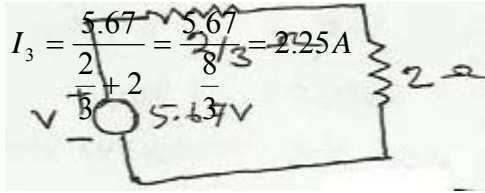 I₃ = 5.67 / (2/3 + 2) = 5.67 / (8/3) = 2.25A
2/3
2 Ω
V + − 5.67V